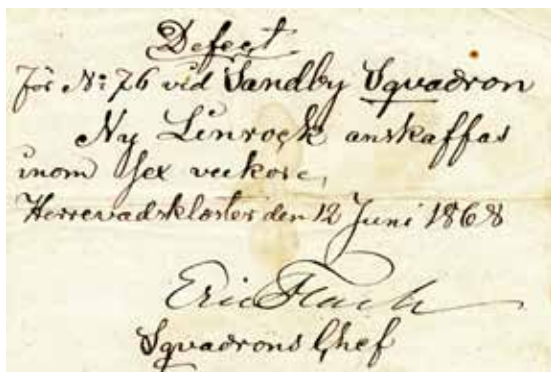 Defect
för N: 76 vid Sandby Sqvadron
Ny Linrock anskaffas
inom sex veckor,
Herrevadskloster den 12 Juni 1868
Eric Flach
Sqvadrons Chef